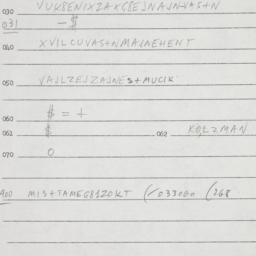 030 VUKBENIXZAXGBEJNAJNVAS+N
031 —$
040 XVILCUVAS+NMAJNEHENT
050 VAJLZEJZAJNES+MUCIK
060 $ = +
061 $ 062 KOLZMAN
070 0
400 MIS+TAMEG81ZOKT (/0330Bo (268